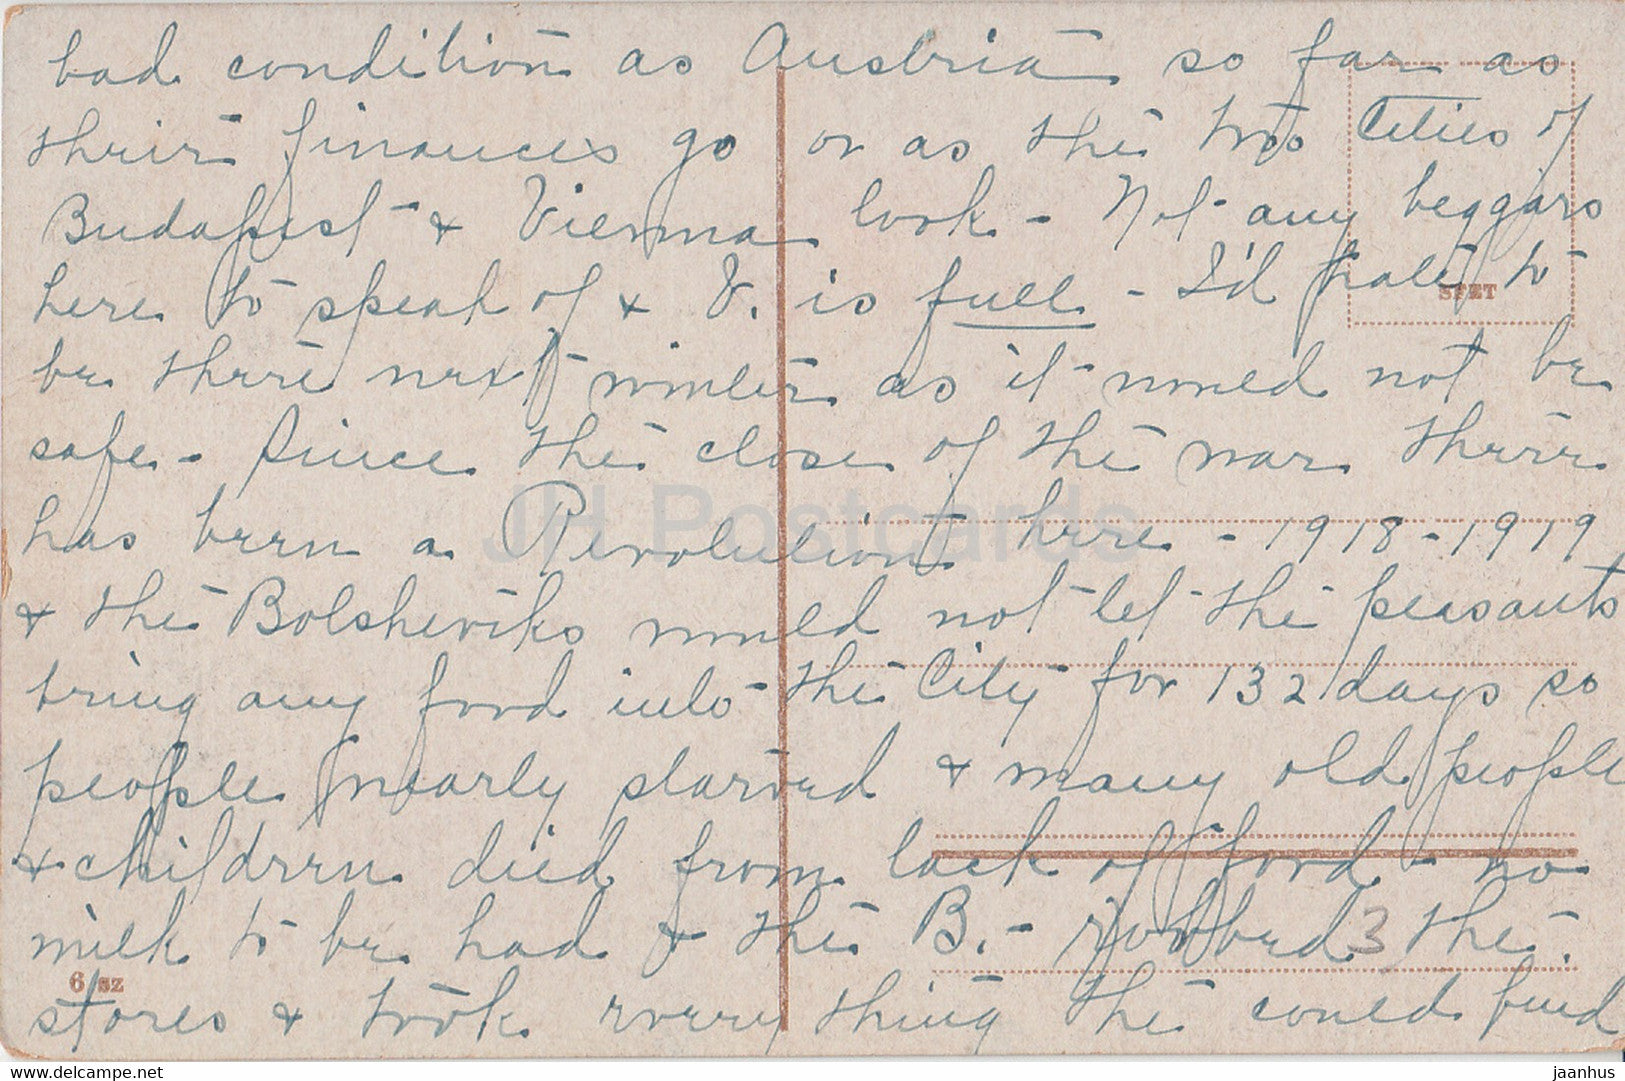 bad condition as Austria so far as
their finances go or as the two Cities of
Budapest & Vienna look - Not any beggars
here to speak of & V. is full - I'd hate to
be there next winter as it would not be
safe - Since the close of the war there
has been a Revolution here - 1918-1919
& the Bolsheviks would not let the peasants
bring any food into the City for 132 days so
people nearly starved & many old people
& children died from lack of food - no
milk to be had & the B. - robbed 3 the
stores & took every thing the could find
SFET
6 sz
JH Postcards
delcampe.net
jaanhus